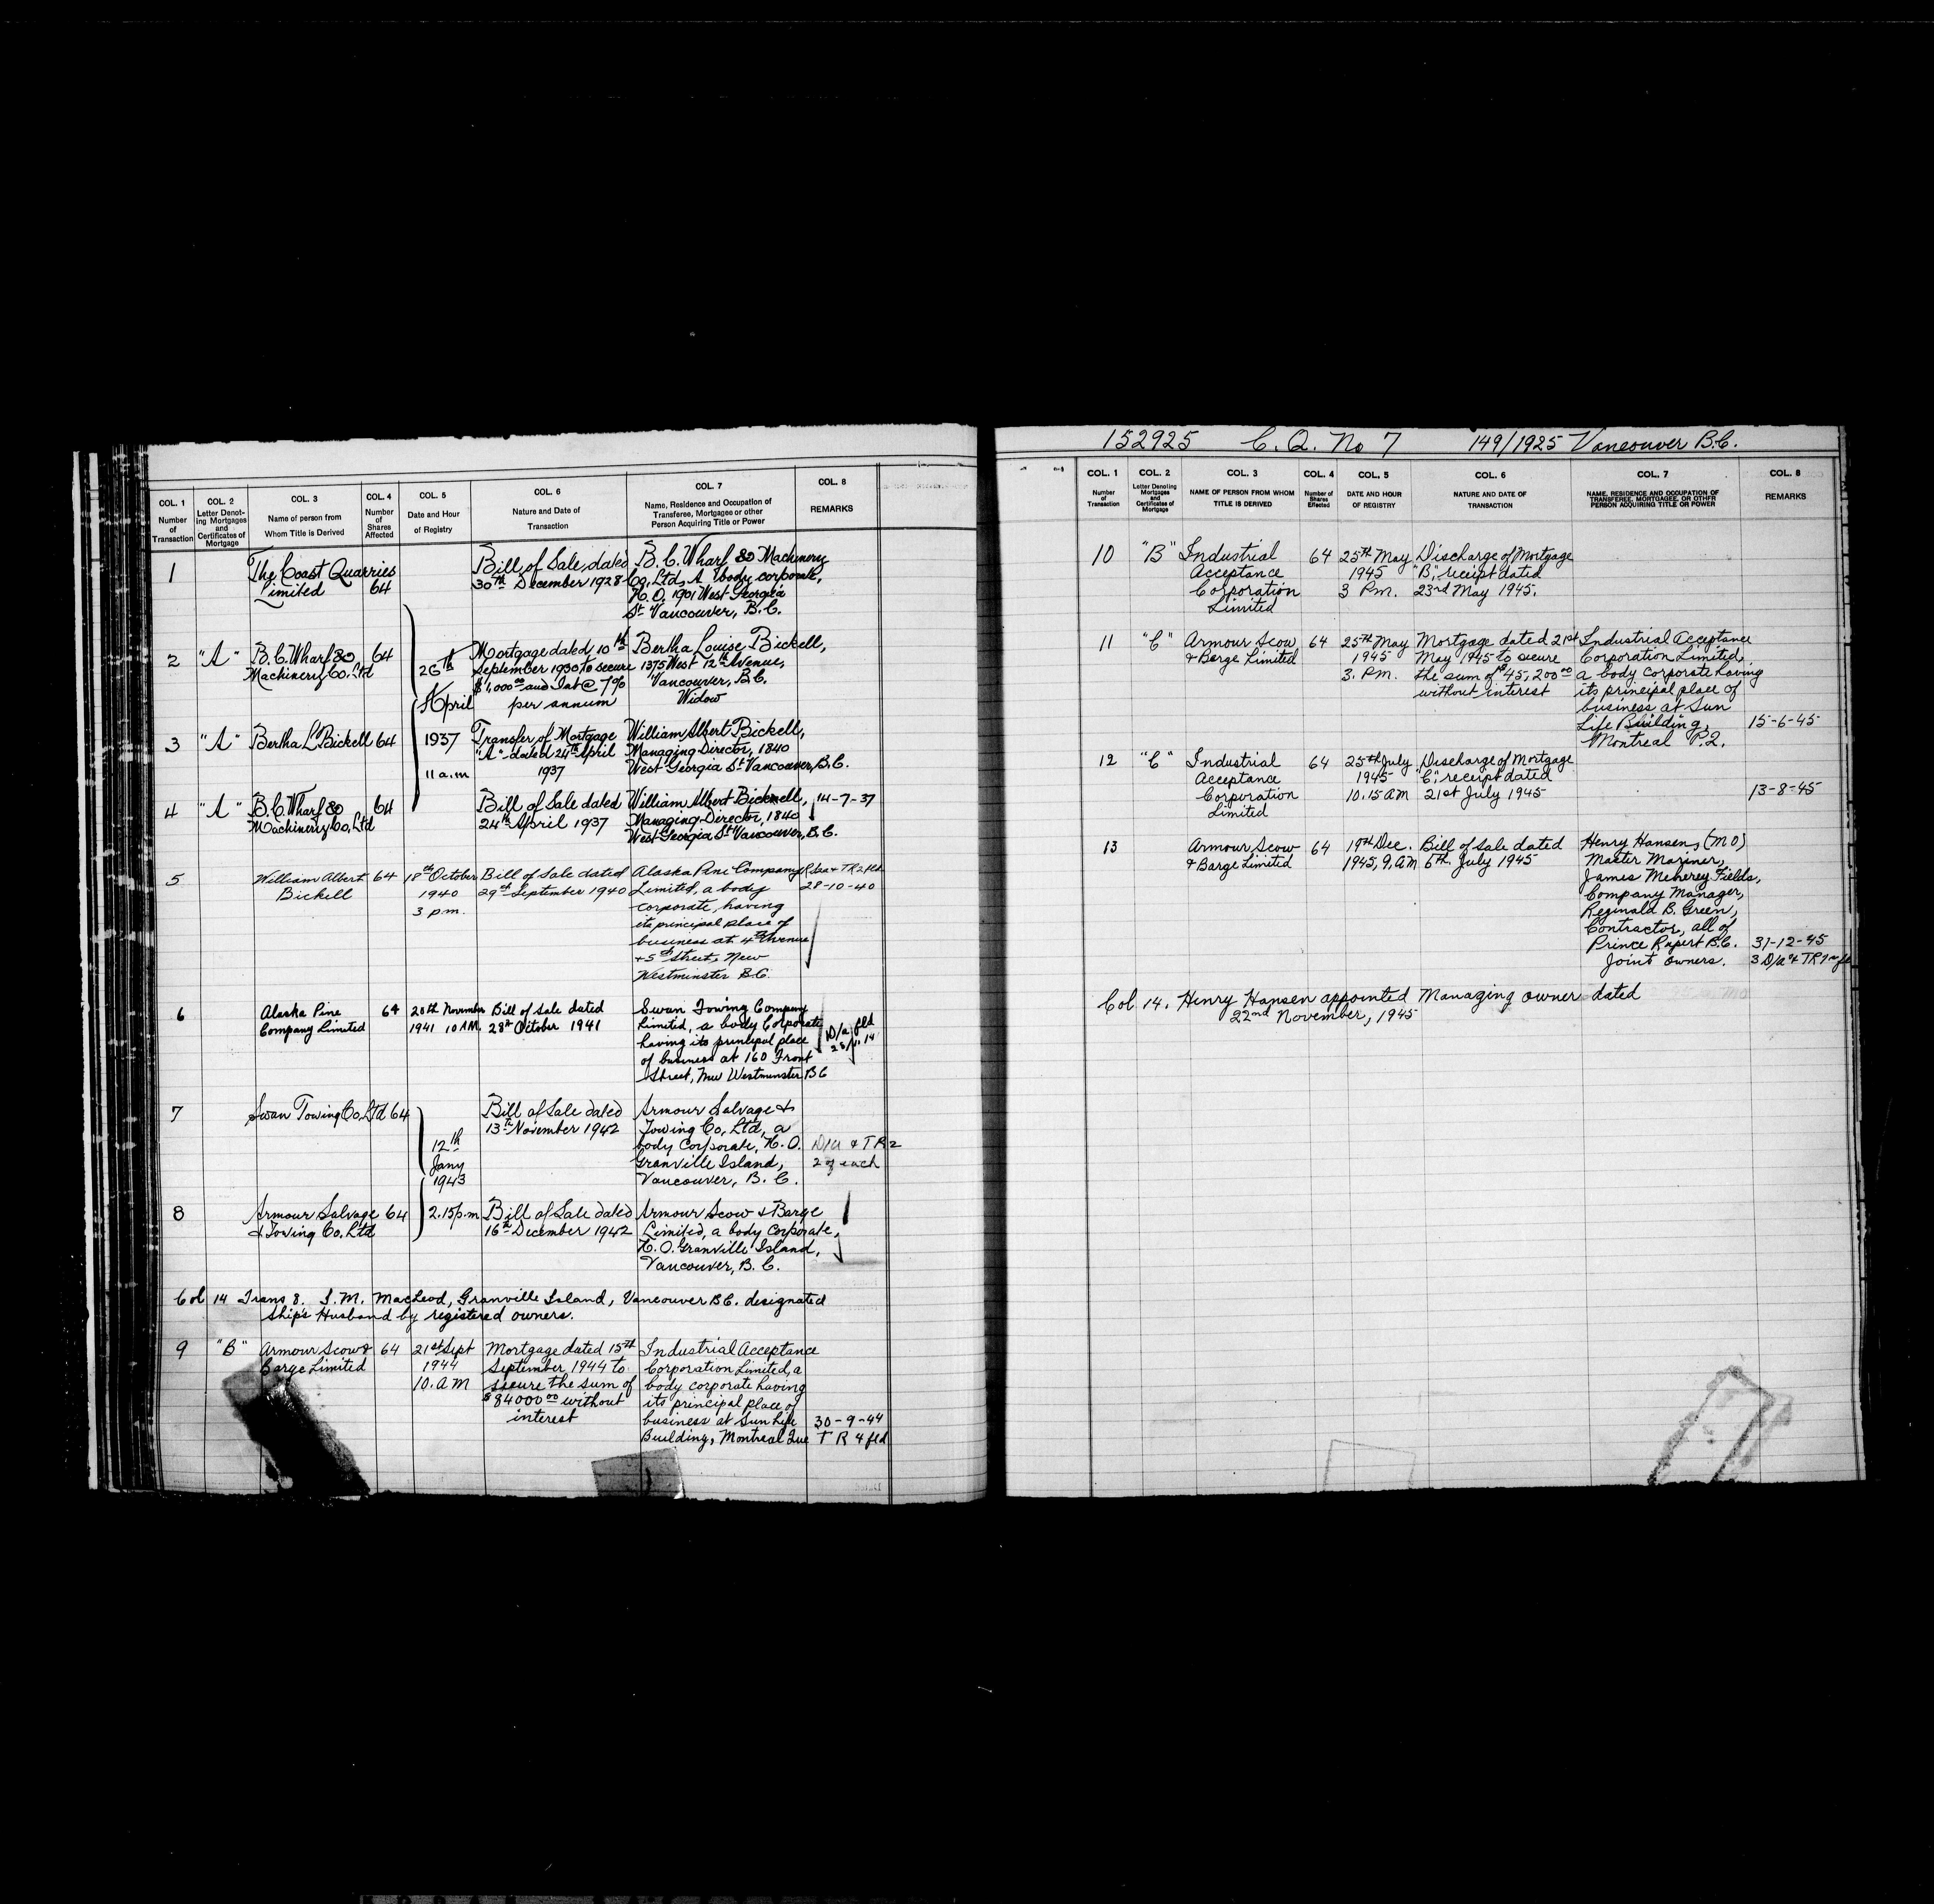 COL. 1
Number
of
Transaction
COL. 2
Letter Denot-
ing Mortgages
and
Certificates of
Mortgage
COL. 3
Name of person from
Whom Title is Derived
COL. 4
Number
of
Shares
Affected
COL. 5
Date and Hour
of Registry
COL. 6
Nature and Date of
Transaction
COL. 7
Name, Residence and Occupation of
Transferee, Mortgagee or other
Person Acquiring Title or Power
COL. 8
REMARKS
1
The Coast Quarries
Limited 64
Bill of Sale, dated
30th December 1928
B.C. Wharf & Machinery
Co, Ltd, A body corporate,
H.O. 1901 West Georgia
St Vancouver, B.C.
2 "A" B.C. Wharf & 64
Machinery Co. Ltd
26th
April
1937
11 a.m
Mortgage dated 10th
September 1930 to secure
$1,000.00 and Int @ 7%
per annum
Bertha Louise Bickell,
1375 West 12th Avenue,
Vancouver, B.C.
Widow
3 "A" Bertha L Bickell 64
Transfer of Mortgage
"A" dated 24th April
1937
William Albert Bickell,
Managing Director, 1840
West Georgia St Vancouver, B.C.
4 "A" B.C. Wharf & 64
Machinery Co, Ltd
Bill of Sale dated
24th April 1937
William Albert Bickell,
Managing Director, 1840
West Georgia St Vancouver, B.C.
14-7-37
5 William Albert 64
Bickell
18th October
1940
3 p.m.
Bill of Sale dated
29th September 1940
Alaska Pine Company
Limited, a body
corporate, having
its principal place of
business at 4th Avenue
+ 5th Street, New
Westminster B.C.
28-10-40
6 Alaska Pine 64
Company Limited
20th November
1941 10 AM.
Bill of Sale dated
28th October 1941
Swan Towing Company
Limited, a body Corporate
having its principal place
of business at 160 Front
Street, New Westminster BC
D/a fld
7 Swan Towing Co, Ltd 64
12th
Jany
1943
Bill of Sale dated
13th November 1942
Armour Salvage &
Towing Co, Ltd, a
body Corporate, H.O.
Granville Island,
Vancouver, B.C.
D/a & TR 2
2 of each
8 Armour Salvage 64
& Towing Co. Ltd
2.15 p.m
Bill of Sale dated
16th December 1942
Armour Scow & Barge
Limited, a body Corporate,
H.O. Granville Island,
Vancouver, B.C.
Col 14 Trans 8. J.M. MacLeod, Granville Island, Vancouver B.C. designated
Ship's Husband by registered owners.
9 "B" Armour Scow & 64
Barge Limited
21st Sept
1944
10. A M
Mortgage dated 15th
September 1944 to
secure the sum of
$84000.00 without
interest
Industrial Acceptance
Corporation Limited, a
body corporate having
its principal place of
business at Sun Life
Building, Montreal Que
30-9-44
T R 4 fld
152925 C.Q. No 7 149/1925 Vancouver B.C.
COL. 1
Number
of
Transaction
COL. 2
Letter Denoting
Mortgages
and
Certificates of
Mortgage
COL. 3
NAME OF PERSON FROM WHOM
TITLE IS DERIVED
COL. 4
Number of
Shares
Effected
COL. 5
DATE AND HOUR
OF REGISTRY
COL. 6
NATURE AND DATE OF
TRANSACTION
COL. 7
NAME, RESIDENCE AND OCCUPATION OF
TRANSFEREE, MORTGAGEE, OR OTHER
PERSON ACQUIRING TITLE OR POWER
COL. 8
REMARKS
10 "B" Industrial 64
Acceptance
Corporation
Limited
25th May
1945
3 P.m.
Discharge of Mortgage
"B", receipt dated
23rd May 1945.
11 "C" Armour Scow 64
& Barge Limited
25th May
1945
3. P.m.
Mortgage dated 21st
May 1945 to secure
the sum of $45,200.00
without interest
Industrial Acceptance
Corporation Limited,
a body corporate having
its principal place of
business at Sun
Life Building,
Montreal P.Q.
15-6-45
12 "C" Industrial 64
Acceptance
Corporation
Limited
25th July
1945
10.15 AM
Discharge of Mortgage
"C", receipt dated
21st July 1945
13-8-45
13 Armour Scow 64
& Barge Limited
19th Dec.
1945, 9, AM
Bill of Sale dated
6th July 1945
Henry Hansen, (M O)
Master Mariner,
James Meherey Fields,
Company Manager,
Reginald B. Green,
Contractor, all of
Prince Rupert B.C.
Joint Owners.
31-12-45
Col 14. Henry Hansen appointed Managing owner dated
22nd November, 1945